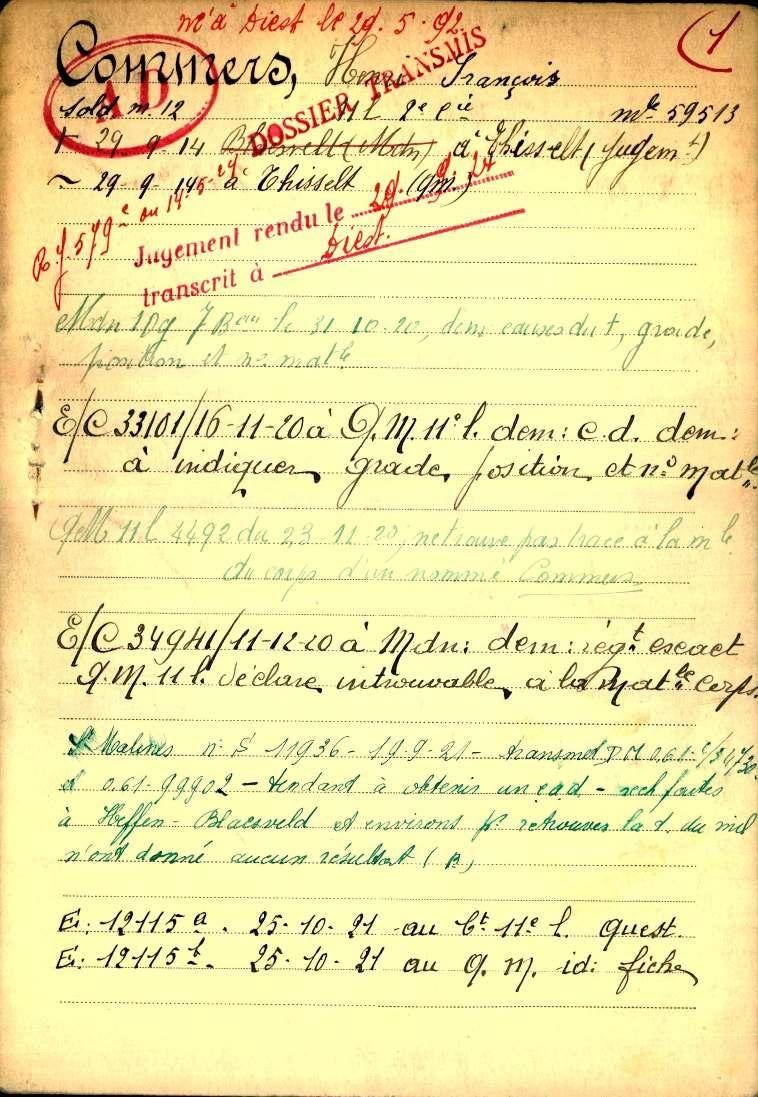 né à Diest le 29.5.92
(1
Commers, Henri François
AD
DOSSIER TRANSMIS
sold. m. 12 11 L 2e Cie mle 59513
† 29-9-14 à Thisselt (Jugemt)
~ 29-9-14 à Thisselt (gm)
R. f. 579
Jugement rendu le
transcrit à Diest.
Mdn 1Dg 7 Beau le 31-10-20, dem causes du †, grade,
position et no matle
E/C 33101/16-11-20 à Q.M. 11e l. dem: c.d. dem:
à indiquer grade, position et no matle
QM 11 l 4492 du 23-11-20, ne trouve pas trace à la mle
du corps d'un nommé Commers
E/C 34941/11-12-20 à Mdn: dem: régt exact
Q.M. 11 l. déclare introuvable à la matle corps.
Pt Malines no S 11936 - 19-9-21 - transmet
et 0.61-99902 - tendant à obtenir un c.a.d - rech faites
à Heffen - Blaesveld et environs pr retrouver la t. du mil
n'ont donné aucun résultat (R)
E: 12115a. 25-10-21 au Ct 11e l. quest.
E: 12115b. 25-10-21 au Q.M. id: fiche